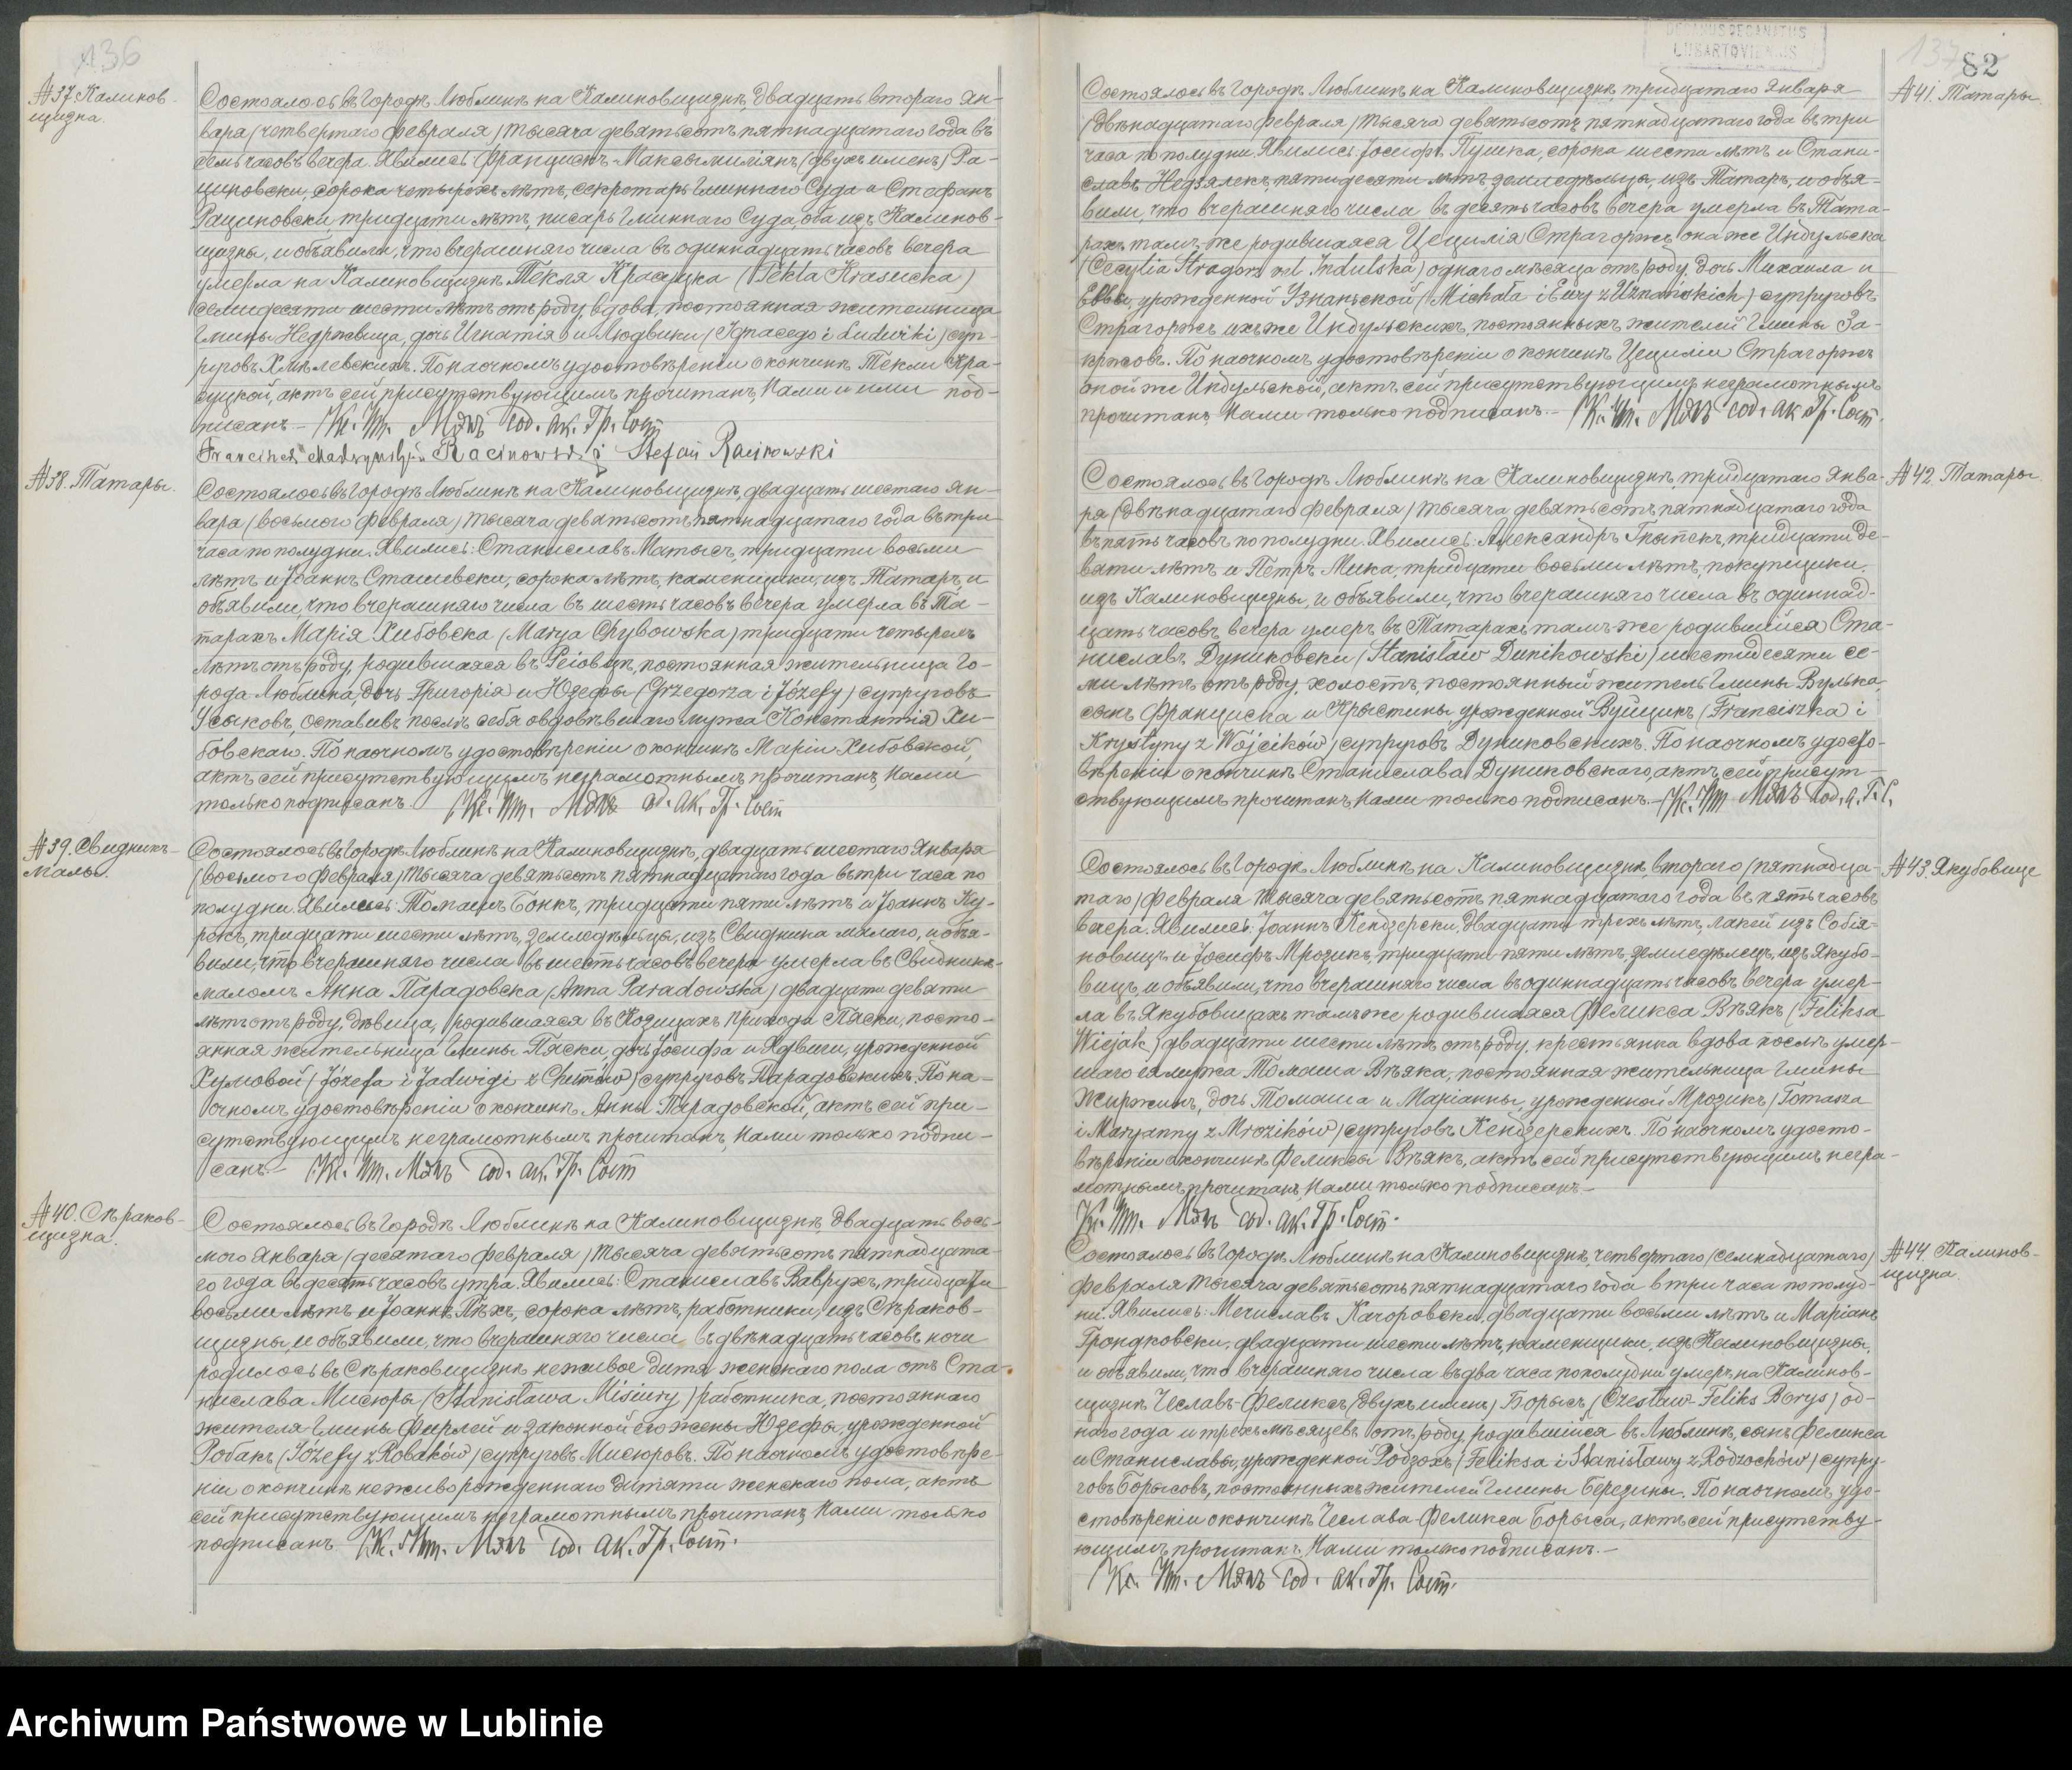 136
№37 Калинов-
щизна.
Состоялось въ Городѣ Люблинѣ на Калиновщизнѣ, двадцать втораго Ян-
варя /четвертаго Февраля/ тысяча девятьсотъ пятнадцатаго года въ
семь часовъ вечера. Явились: Францискъ-Максымиліянъ (двухъ именъ) Ра-
циновски, сорока четырехъ лѣтъ, секретарь Гминнаго Суда и Стефанъ
Рациновски, тридцати лѣтъ, писарь Гминнаго Суда, оба изъ Калинов-
щизны, и объявили, что вчерашняго числа въ одиннадцать часовъ вечера
умерла на Калиновщизнѣ Текля Красуцка (Tekla Krasucka)
семидесяти шести лѣтъ отъ роду, вдова, постоянная жительница
Гмины Недржвица, дочь Игнатія и Людвики (Ignacego i Ludwiki) суп-
руговъ Хмѣлевскихъ. По наочномъ удостовѣреніи о кончинѣ Текли Кра-
суцкой, актъ сей присутствующимъ прочитанъ, Нами и ими под-
писанъ.– Кс. Ип. Мязъ Сод. ак. Гр. Сост
Franciszek Maksymiljan Racinowski i Stefan Racinowski
№38. Татары.
Состоялось въ Городѣ Люблинѣ на Калиновщизнѣ, двадцать шестаго Ян-
варя (восьмого Февраля) тысяча девятьсотъ пятнадцатаго года въ три
часа по полудни. Явились: Станиславъ Матысъ, тридцати восьми
лѣтъ и Іоаннъ Сташевски, сорока лѣтъ, каменщики, изъ Татаръ, и
объявили, что вчерашняго числа въ шесть часовъ вечера умерла въ Та-
тарахъ Марія Хибовска (Marya Chybowska) тридцати четырехъ
лѣтъ отъ роду, родившаяся въ Реіовцѣ, постоянная жительница Го-
рода Люблина, дочь Григорія и Юзефы (Grzegorza i Józefy) супруговъ
Усыковъ, оставивъ послѣ себя овдовѣвшаго мужа Константія Хи-
бовскаго. По наочномъ удостовѣреніи о кончинѣ Маріи Хибовской,
актъ сей присутствующимъ неграмотнымъ прочитанъ, Нами
только подписанъ. Кс. Ип. Мязъ Сод. ак. Гр. Сост
№39. Свидникъ-
Малы.
Состоялось въ Городѣ Люблинѣ на Калиновщизнѣ, двадцать шестаго Января
(восьмого Февраля) тысяча девятьсотъ пятнадцатаго года въ три часа по
полудни. Явились: Томашъ Бонкъ, тридцати пяти лѣтъ и Іоаннъ Ку-
рекъ, тридцати шести лѣтъ, земледѣльцы, изъ Свидника малаго, и объя-
вили, что вчерашняго числа въ шесть часовъ вечера умерла въ Свидникѣ-
маломъ Анна Парадовска (Anna Paradowska) двадцати девяти
лѣтъ отъ роду, дѣвица, родившаяся въ Козицахъ прихода Пяски, посто-
янная жительница Гмины Пяски, дочь Іосифа и Ядвиги, урожденной
Хумовой (Józefa i Jadwigi z Chumów) супруговъ Парадовскихъ. По на-
очномъ удостовѣреніи о кончинѣ Анны Парадовской, актъ сей при-
сутствующимъ неграмотнымъ прочитанъ, Нами только подпи-
санъ.– Кс. Ип. Мязъ Сод. ак. Гр. Сост
№40. Сѣраков-
щизна.
Состоялось въ Городѣ Люблинѣ на Калиновщизнѣ, двадцать вось-
мого Января (десятаго Февраля) тысяча девятьсотъ пятнадцата-
го года въ десять часовъ утра. Явились: Станиславъ Вавруxъ, тридцати
восьми лѣтъ и Іоаннъ Лѣхъ, сорока лѣтъ, работники, изъ Сѣраков-
щизны, и объявили, что вчерашняго числа въ двѣнадцать часовъ ночи
родилось въ Сѣраковщизнѣ неживое дитя женскаго пола отъ Ста-
нислава Мисюры (Stanisława Misiury) работника, постояннаго
жителя Гмины Фирлей и законной его жены Юзефы, урожденной
Робакъ (Józefy z Robaków) супруговъ Мисюровъ. По наочномъ удостовѣре-
ніи о кончинѣ неживорожденнаго дитяти женскаго пола, актъ
сей присутствующимъ неграмотнымъ прочитанъ, Нами только
подписанъ. Кс. Ип. Мязъ Сод. ак. Гр. Сост.
DECANUS DECANATUS
LUBARTOVIENSIS
137
82
№41. Татары.
Состоялось въ Городѣ Люблинѣ на Калиновщизнѣ, тридцатаго Января
(двѣнадцатаго Февраля) тысяча девятьсотъ пятнадцатаго года въ три
часа по полудни. Явились: Іосифъ Пушка, сорока шести лѣтъ и Стани-
славъ Недзялекъ, пятидесяти лѣтъ, земледѣльцы, изъ Татаръ, и объя-
вили, что вчерашняго числа въ десять часовъ вечера умерла въ Тата-
рахъ тамъ-же родившаяся Цецилія Страгоржъ она же Индульска
(Cecylia Stragorz vel Indulska) однаго мѣсяца отъ роду, дочь Михаила и
Еввы, урожденной Узнаньской (Michała i Ewy z Uznańskich) супруговъ
Страгоржъ ихъ же Индульскихъ, постоянныхъ жителей Гмины За-
кржовъ. По наочномъ удостовѣреніи о кончинѣ Цециліи Страгоржъ
оной же Индульской, актъ сей присутствующимъ неграмотнымъ
прочитанъ, Нами только подписанъ.– Кс. Ип. Мязъ Сод. ак. Гр. Сост.
№42. Татары.
Состоялось въ Городѣ Люблинѣ на Калиновщизнѣ, тридцатаго Янва-
ря (двѣнадцатаго Февраля) тысяча девятьсотъ пятнадцатаго года
въ пять часовъ по полудни. Явились: Александръ тридцати де-
вяти лѣтъ и Петръ Мика, тридцати восьми лѣтъ, покупщики,
изъ Калиновщизны, и объявили, что вчерашняго числа въ одиннад-
цать часовъ вечера умеръ въ Татарахъ тамъ-же родившійся Ста-
ниславъ Дуниковски (Stanisław Dunikowski) шестидесяти се-
ми лѣтъ отъ роду, холостъ, постоянный житель Гмины Вулька,
сынъ Франциска и Крыстины урожденной Вуйцикъ (Franciszka i
Krystyny z Wójcików) супруговъ Дуниковскихъ. По наочномъ удосто-
вѣреніи о кончинѣ Станислава Дуниковскаго, актъ сей присут-
ствующимъ прочитанъ, Нами только подписанъ.– Кс. Ип. Мязъ Сод. а. Г. С.
№43. Якубовице
Состоялось въ Городѣ Люблинѣ на Калиновщизнѣ, втораго (пятнадца-
таго) Февраля тысяча девятьсотъ пятнадцатаго года въ пять часовъ
вечера. Явились: Іоаннъ Кендзерски, двадцати трехъ лѣтъ, лакей изъ Собія-
новицъ и Іосифъ Мрозикъ, тридцати пяти лѣтъ, земледѣлецъ, изъ Якубо-
вицъ, и объявили, что вчерашняго числа въ одиннадцать часовъ вечера умер-
ла въ Якубовицахъ тамъ же родившаяся Феликса Вѣякъ (Feliksa
Wiejak) двадцати шести лѣтъ отъ роду, крестьянка вдова послѣ умер-
шаго ея мужа Томаша Вѣяка, постоянная жительница Гмины
Жиржинъ, дочь Томаша и Маріанны, урожденной Мрозикъ (Tomasza
i Maryanny z Mrozików) супруговъ Кендзерскихъ. По наочномъ удосто-
вѣреніи о кончинѣ Феликсы Вѣякъ, актъ сей присутствующимъ негра-
мотнымъ прочитанъ, Нами только подписанъ.–
Кс. Ип. Мязъ Сод. ак. Гр. Сост.
№44 Калинов-
щизна.
Состоялось въ Городѣ Люблинѣ на Калиновщизнѣ, четвертаго (семнадцатаго)
Февраля тысяча девятьсотъ пятнадцатаго года въ три часа по полуд-
ни. Явились: Мечиславъ Качоровски, двадцати восьми лѣтъ и Маріанъ
Грондковски, двадцати шести лѣтъ, каменщики, изъ Калиновщизны,
и объявили, что вчерашняго числа въ два часа по полудни умеръ на Калинов-
щизнѣ Чеславъ-Феликсъ (двухъ именъ) Борысъ (Czesław-Feliks Borys) од-
наго года и трехъ мѣсяцевъ отъ роду, родившійся въ Люблинѣ, сынъ Феликса
и Станиславы, урожденной Родзохъ (Feliksa i Stanisławy z Rodzochów) супру-
говъ Борысовъ, постоянныхъ жителей Гмины Березины. По наочномъ удо-
стовѣреніи о кончинѣ Чеслава-Феликса Борыса, актъ сей присутству-
ющимъ прочитанъ, Нами только подписанъ.–
Кс. Ип. Мязъ Сод. ак. Гр. Сост.
Archiwum Państwowe w Lublinie